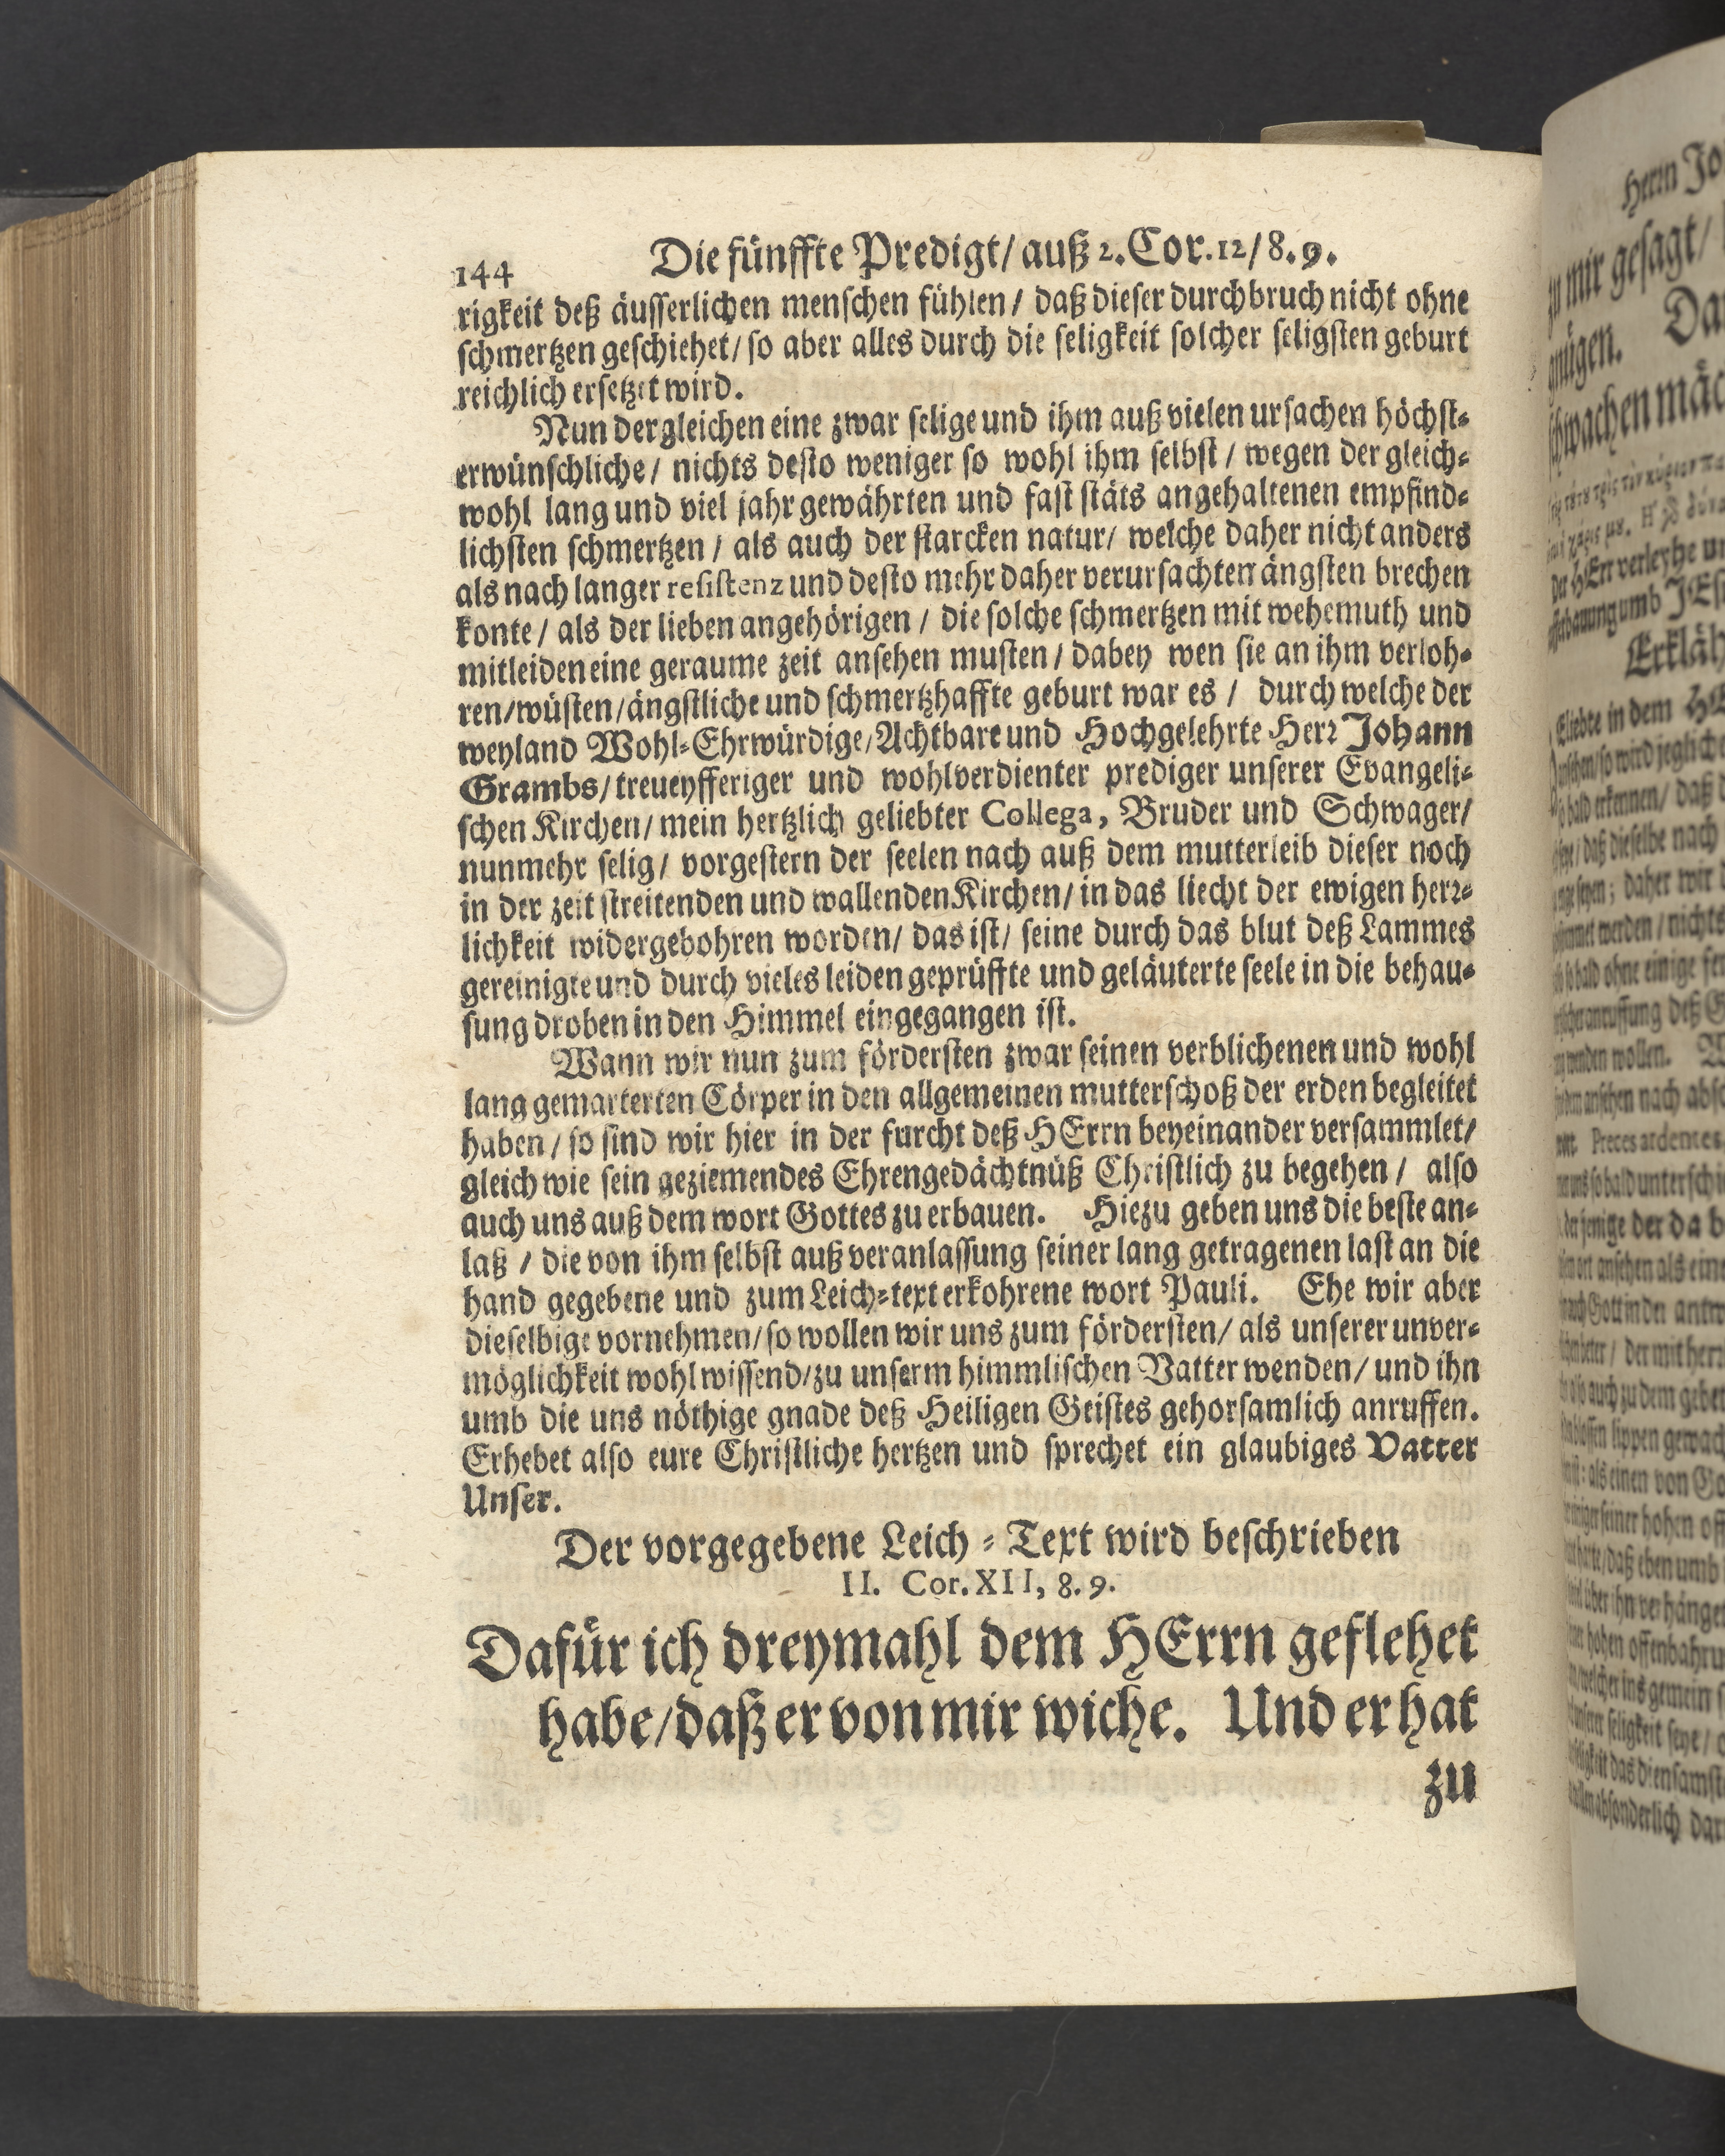 144 Die fünffte Predigt/ auß 2. Cor. 12/ 8. 9.
rigkeit deß äusserlichen menschen fühlen / daß dieser durchbruch nicht ohne
schmertzen geschiehet/ so aber alles durch die seligkeit solcher seligsten geburt
reichlich ersetzet wird.
Nun dergleichen eine zwar selige und ihm auß vielen ursachen höchst-
erwünschliche / nichts desto weniger so wohl ihm selbst / wegen der gleich-
wohl lang und viel jahr gewährten und fast stäts angehaltenen empfind-
lichsten schmertzen / als auch der starcken natur/ welche daher nicht anders
als nach langer resistenz und desto mehr daher verursachten ängsten brechen
konte / als der lieben angehörigen / die solche schmertzen mit wehemuth und
mitleiden eine geraume zeit ansehen musten / dabey wen sie an ihm verloh-
ren/ wüsten/ ängstliche und schmertzhaffte geburt war es / durch welche der
weyland Wohl-Ehrwürdige/ Achtbare und Hochgelehrte Herr Johann
Grambs/ treueyfferiger und wohlverdienter prediger unserer Evangeli-
schen Kirchen/ mein hertzlich geliebter Collega, Bruder und Schwager/
nunmehr selig/ vorgestern der seelen nach auß dem mutterleib dieser noch
in der zeit streitenden und wallenden Kirchen/ in das liecht der ewigen herr-
lichkeit widergebohren worden/ das ist/ seine durch das blut deß Lammes
gereinigte und durch vieles leiden geprüffte und geläuterte seele in die behau-
sung droben in den Himmel eingegangen ist.
Wann wir nun zum fördersten zwar seinen verblichenen und wohl
lang gemarterten Cörper in den allgemeinen mutterschoß der erden begleitet
haben / so sind wir hier in der furcht deß HErrn beyeinander versammlet/
gleich wie sein geziemendes Ehrengedächtnüß Christlich zu begehen / also
auch uns auß dem wort Gottes zu erbauen. Hiezu geben uns die beste an-
laß / die von ihm selbst auß veranlassung seiner lang getragenen last an die
hand gegebene und zum Leich-text erkohrene wort Pauli. Ehe wir aber
dieselbige vornehmen/ so wollen wir uns zum fördersten/ als unserer unver-
möglichkeit wohl wissend/ zu unserm himmlischen Vatter wenden/ und ihn
umb die uns nöthige gnade deß Heiligen Geistes gehorsamlich anruffen.
Erhebet also eure Christliche hertzen und sprechet ein glaubiges Vatter
Unser.
Der vorgegebene Leich-Text wird beschrieben
II. Cor. XII, 8. 9.
Dafür ich dreymahl dem HErrn geflehet
habe/ daß er von mir wiche. Und er hat
zu
Herrn
zu mir gesagt/
gnügen.
schwachen
Erkläh
Eliebte in dem
so wird jegliche
so bald erkennen/ daß
daß dieselbe nach
daher wir
werden / nichts
bald ohne einige
anruffung deß
werden wollen.
ansehen nach
Preces ardentes
uns so bald
der jenige der da
ansehen als eine
Gott in der
der mit
also auch zu dem gebet
lippen
als einen von
seiner hohen
daß eben umb
über ihn
hohen
welcher ins gemein
unserer seligkeit seye/
das diensamste
absonderlich